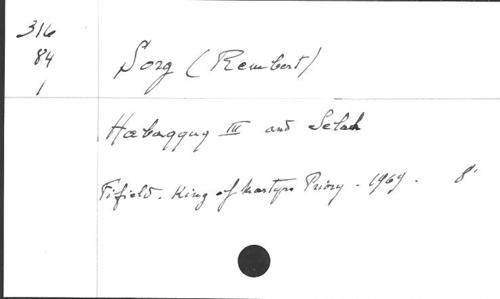 316
84
1
Sorg (Rembert)
Habaqquq III and Selah
Fifield. King of Martyrs Priory. 1969. 8°